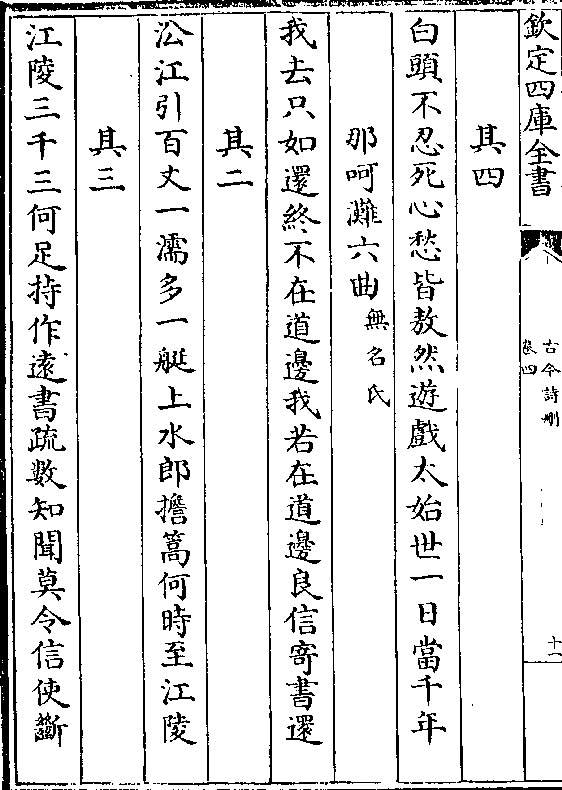 欽定四庫全書
古今詩刪
卷四
十一
其四
白頭不忍死心愁皆敖然遊戲太始世一日當千年
那呵灘六曲 無名氏
我去只如還終不在道邊我若在道邊良信寄書還
其二
㳂江引百丈一濡多一艇上水郎擔篙何時至江陵
其三
江陵三千三何足持作遠書疏數知聞莫令信使斷